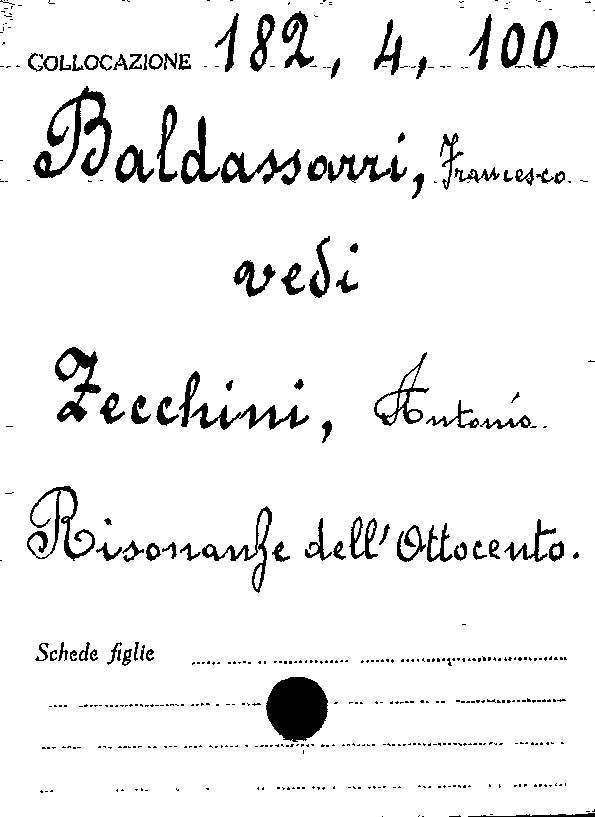 COLLOCAZIONE 182, 4, 100
Baldassarri, Francesco.
vedi
Zecchini, Antonio.
Risonanze dell'Ottocento.
Schede figlie